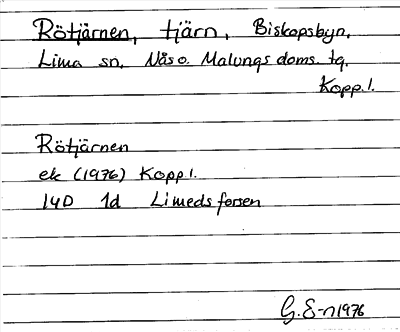 Rötjärnen, tjärn, Biskopsbyn,
Lima sn. Nås o. Malungs doms. tg.
Kopp.l.
Rötjärnen
ek (1976) Kopp.l.
14D 1d Limedsforsen
G. E-n 1976